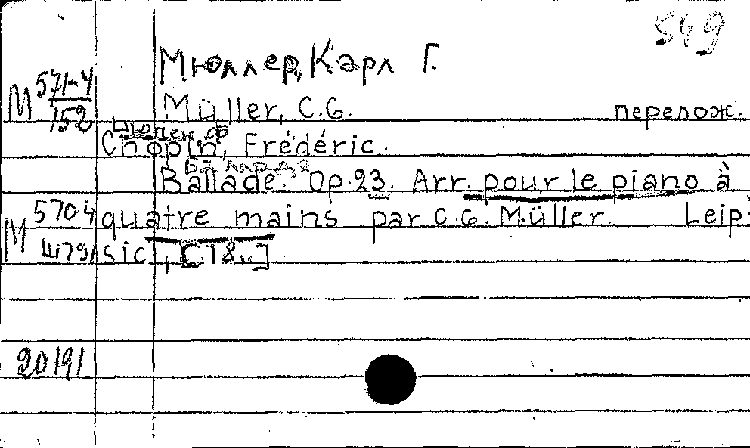 549
Мюллер, Карл Г.
М 571-4/152
Müller, C.G. перелож.
Шопен Ф
Chopin, Frédéric.
Баллада
Ballade. Op.23. Arr. pour le piano à
М 5704/Ш79 quatre mains par C.G. Müller. Leip-
sic, [18..]
20191